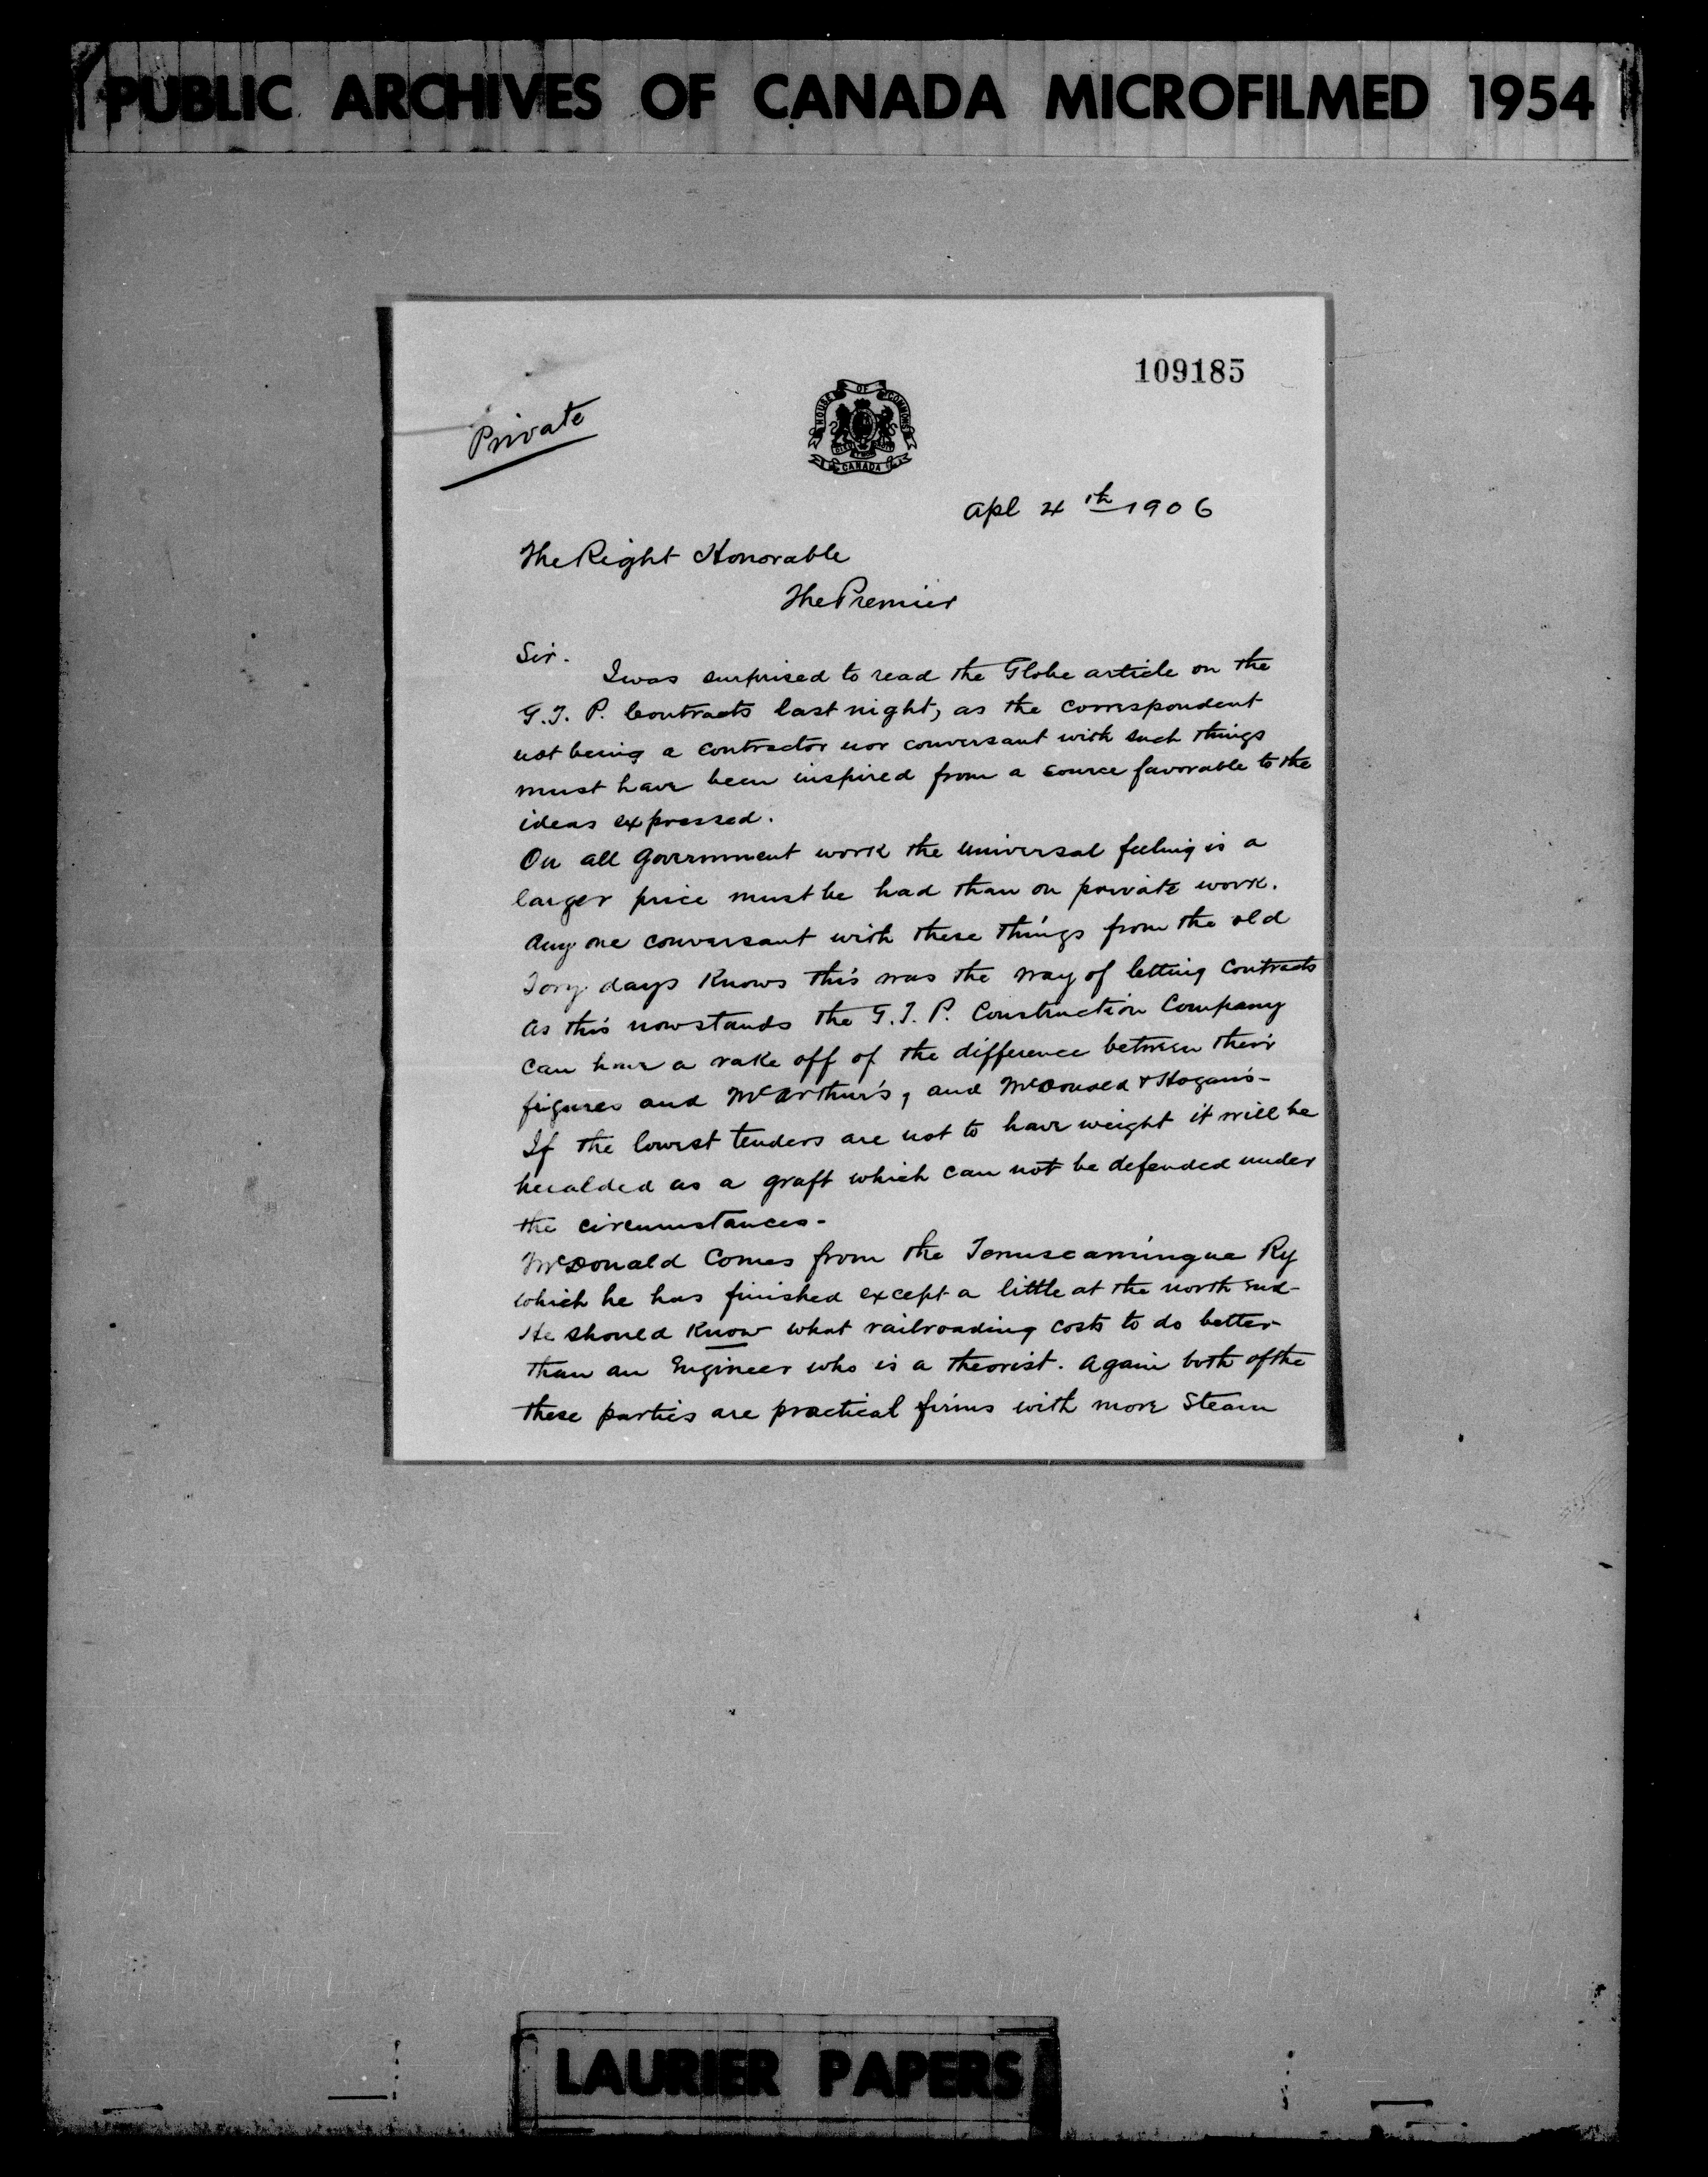 PUBLIC ARCHIVES OF CANADA MICROFILMED 1954
109185
Private
HOUSE OF COMMONS
CANADA
Apl 4th 1906
The Right Honorable
The Premier
Sir.
I was surprised to read the Globe article on the
G.T.P. Contracts last night, as the correspondent
not being a contractor nor conversant with such things
must have been inspired from a source favorable to the
ideas expressed.
On all Government work the universal feeling is a
larger price must be had than on private work.
Any one conversant with these things from the old
Tory days Knows this was the way of letting Contracts
As this now stands the G.T.P. Construction Company
can have a rake off of the difference between their
figures and McArthur's, and McDonald & Hogan's-
If the lowest tenders are not to have weight it will be
heralded as a graft which can not be defended under
the circumstances-
McDonald Comes from the Temiscamingue Ry
which he has finished except a little at the north end-
He should Know what railroading costs to do better
than an Engineer who is a theorist. Again both of the
these parties are practical firms with more Steam
LAURIER PAPERS